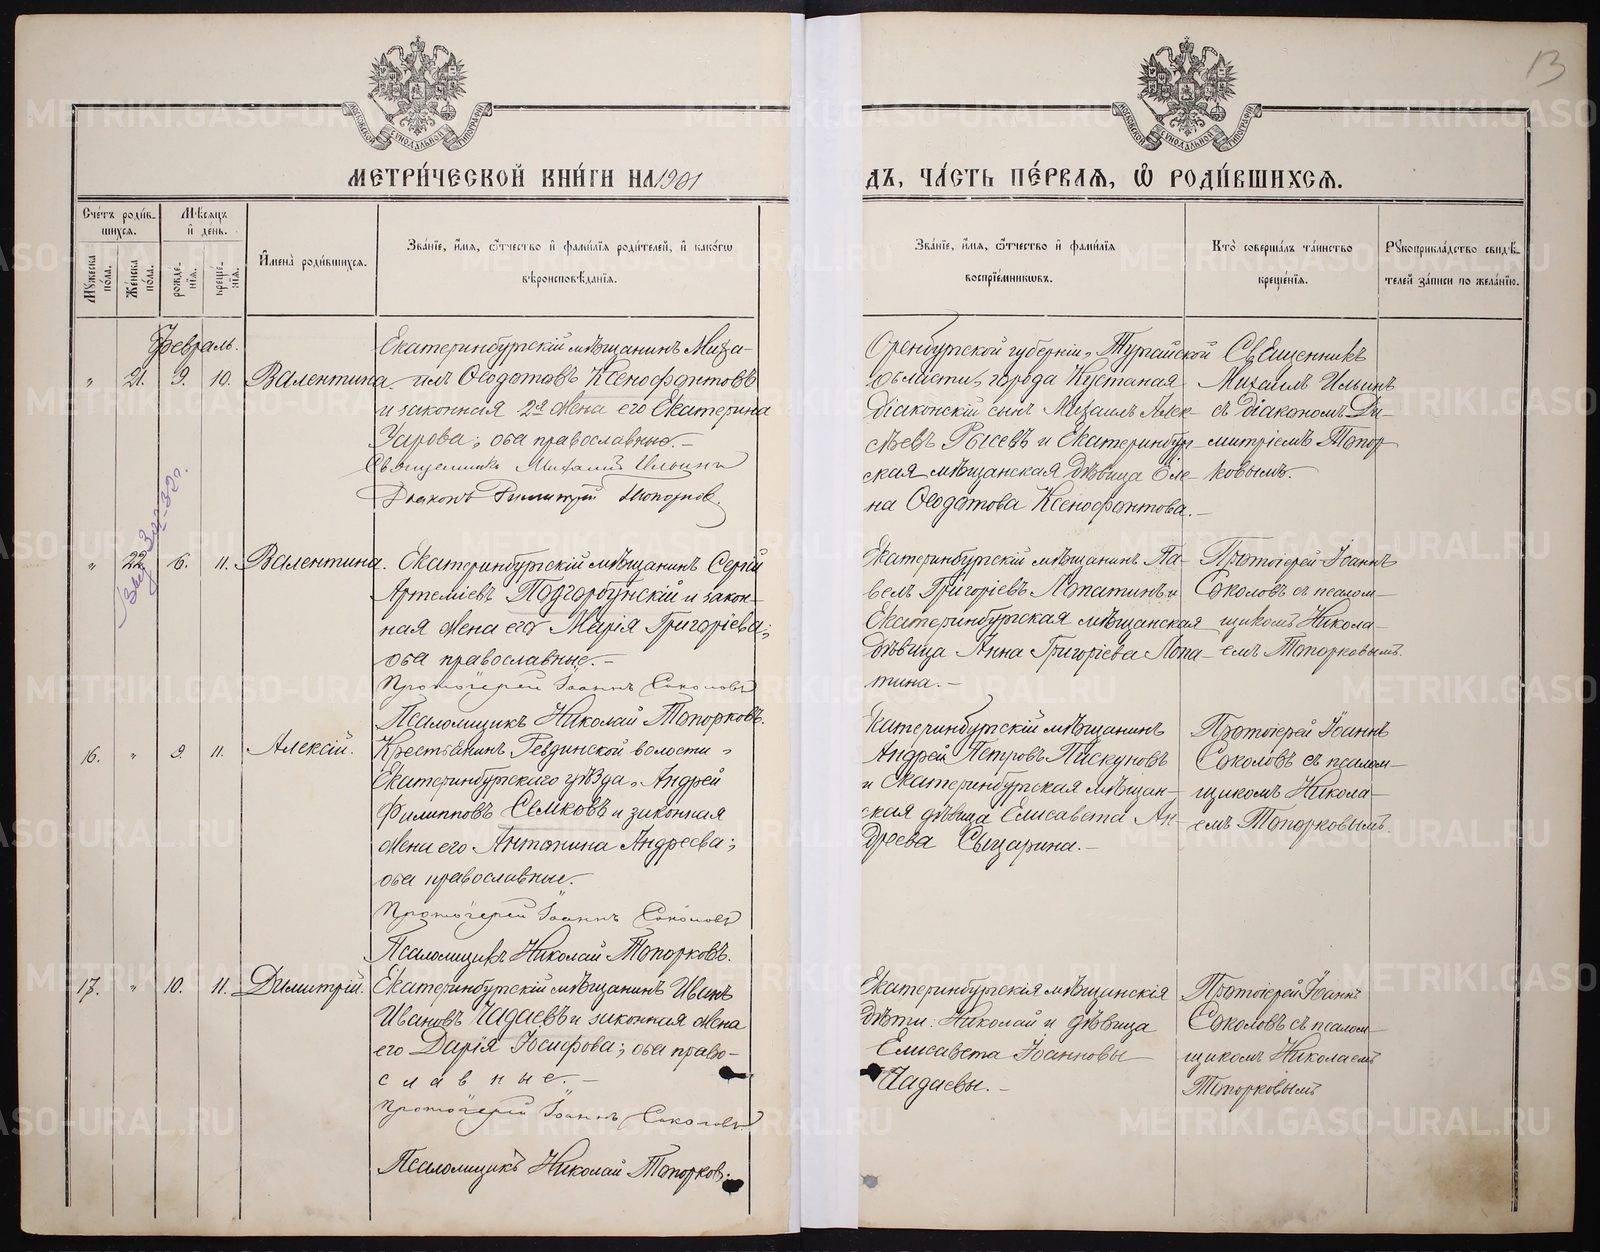 13
МОСКОВСКОЙ СѴНОДАЛЬНОЙ ТИПОГРАФІИ
МОСКОВСКОЙ СѴНОДАЛЬНОЙ ТИПОГРАФІИ
МЕТРИ́ЧЕСКОЙ КНИ́ГИ НА 1901
ДЪ, ЧА́СТЬ ПЕ́РВАѦ, Ѡ РОДИ́ВШИХСѦ.
Сче́тъ роди́в-
шихсѧ.
Мꙋ́жеска по́ла.
Же́нска по́ла.
Мѣ́сѧцъ
и҆ де́нь.
рожде́-
нїѧ.
креще́-
нїѧ.
И҆мена̀ роди́вшихсѧ.
Зва́нїе, и҆́мѧ, ѻ҆́тчество и҆ фами́лїѧ роди́телей, и҆ како́гѡ
вѣроисповѣ́данїѧ.
Зва́нїе, и҆́мѧ, ѻ҆́тчество и҆ фами́лїѧ
воспрїе́мникѡвъ.
Кто̀ соверша́лъ та́инство
креще́нїѧ.
Рꙋкоприкла́дство свидѣ́-
телей за́писи по жела́нїю.
Февраль.
" 21. 9. 10. Валентина
Екатеринбургскій мѣщанинъ Миха-
илъ Ѳеодотовъ Ксенофонтовъ
и законная 2я жена его Екатерина
Уарова; оба православные.-
Священникъ Михаилъ Ильинъ
Діаконъ Димитрій Топорков
Оренбургской губерніи, Тургайской
области, города Кустаная
діаконскій сынъ Михаилъ Алек-
сѣевъ Рысевъ и Екатеринбург-
ская мѣщанская дѣвица Еле-
на Ѳеодотова Ксенофонтова.-
Священникъ
Михаилъ Ильинъ
съ діакономъ Ди-
митріемъ Топор-
ковымъ.
" 22. 6. 11. Валентина.
Екатеринбургскій мѣщанинъ Сергій
Артеміевъ Подгорбунскій и закон-
ная жена его Марія Григоріева;
оба православные.-
Протоіерей Іоаннъ Соколовъ
Псаломщикъ Николай Топорковъ.
Екатеринбургскій мѣщанинъ Па-
велъ Григоріевъ Лопатинъ и
Екатеринбургская мѣщанская
дѣвица Анна Григоріева Лопа-
тина.-
Протоіерей Іоаннъ
Соколовъ съ псалом-
щикомъ Никола-
емъ Топорковымъ.
16. " 9. 11. Алексій.
Крестьянинъ Ревдинской волости,
Екатеринбургскаго уѣзда, Андрей
Филипповъ Семковъ и законная
жена его Антонина Андреева;
оба православные.
Протоіерей Іоаннъ Соколовъ
Псаломщикъ Николай Топорковъ.
Екатеринбургскій мѣщанинъ
Андрей Петровъ Паскуновъ
и Екатеринбургская мѣщан-
ская дѣвица Елисавета Ан-
дреева Сыцарина.-
Протоіерей Іоаннъ
Соколовъ съ псалом-
щикомъ Никола-
емъ Топорковымъ.
17. " 10. 11. Димитрій.
Екатеринбургскій мѣщанинъ Иванъ
Ивановъ Чадаевъ и законная жена
его Дарія Іосифова; оба право-
славные.-
Протоіерей Іоаннъ Соколовъ
Псаломщикъ Николай Топорков.
Екатеринбургскія мѣщанскія
дѣти: Николай и дѣвица
Елисавета Іоанновы
Чадаевы.-
Протоіерей Іоаннъ
Соколовъ съ псалом-
щикомъ Николаемъ
Топорковымъ
METRIKI.GASO-URAL.RU